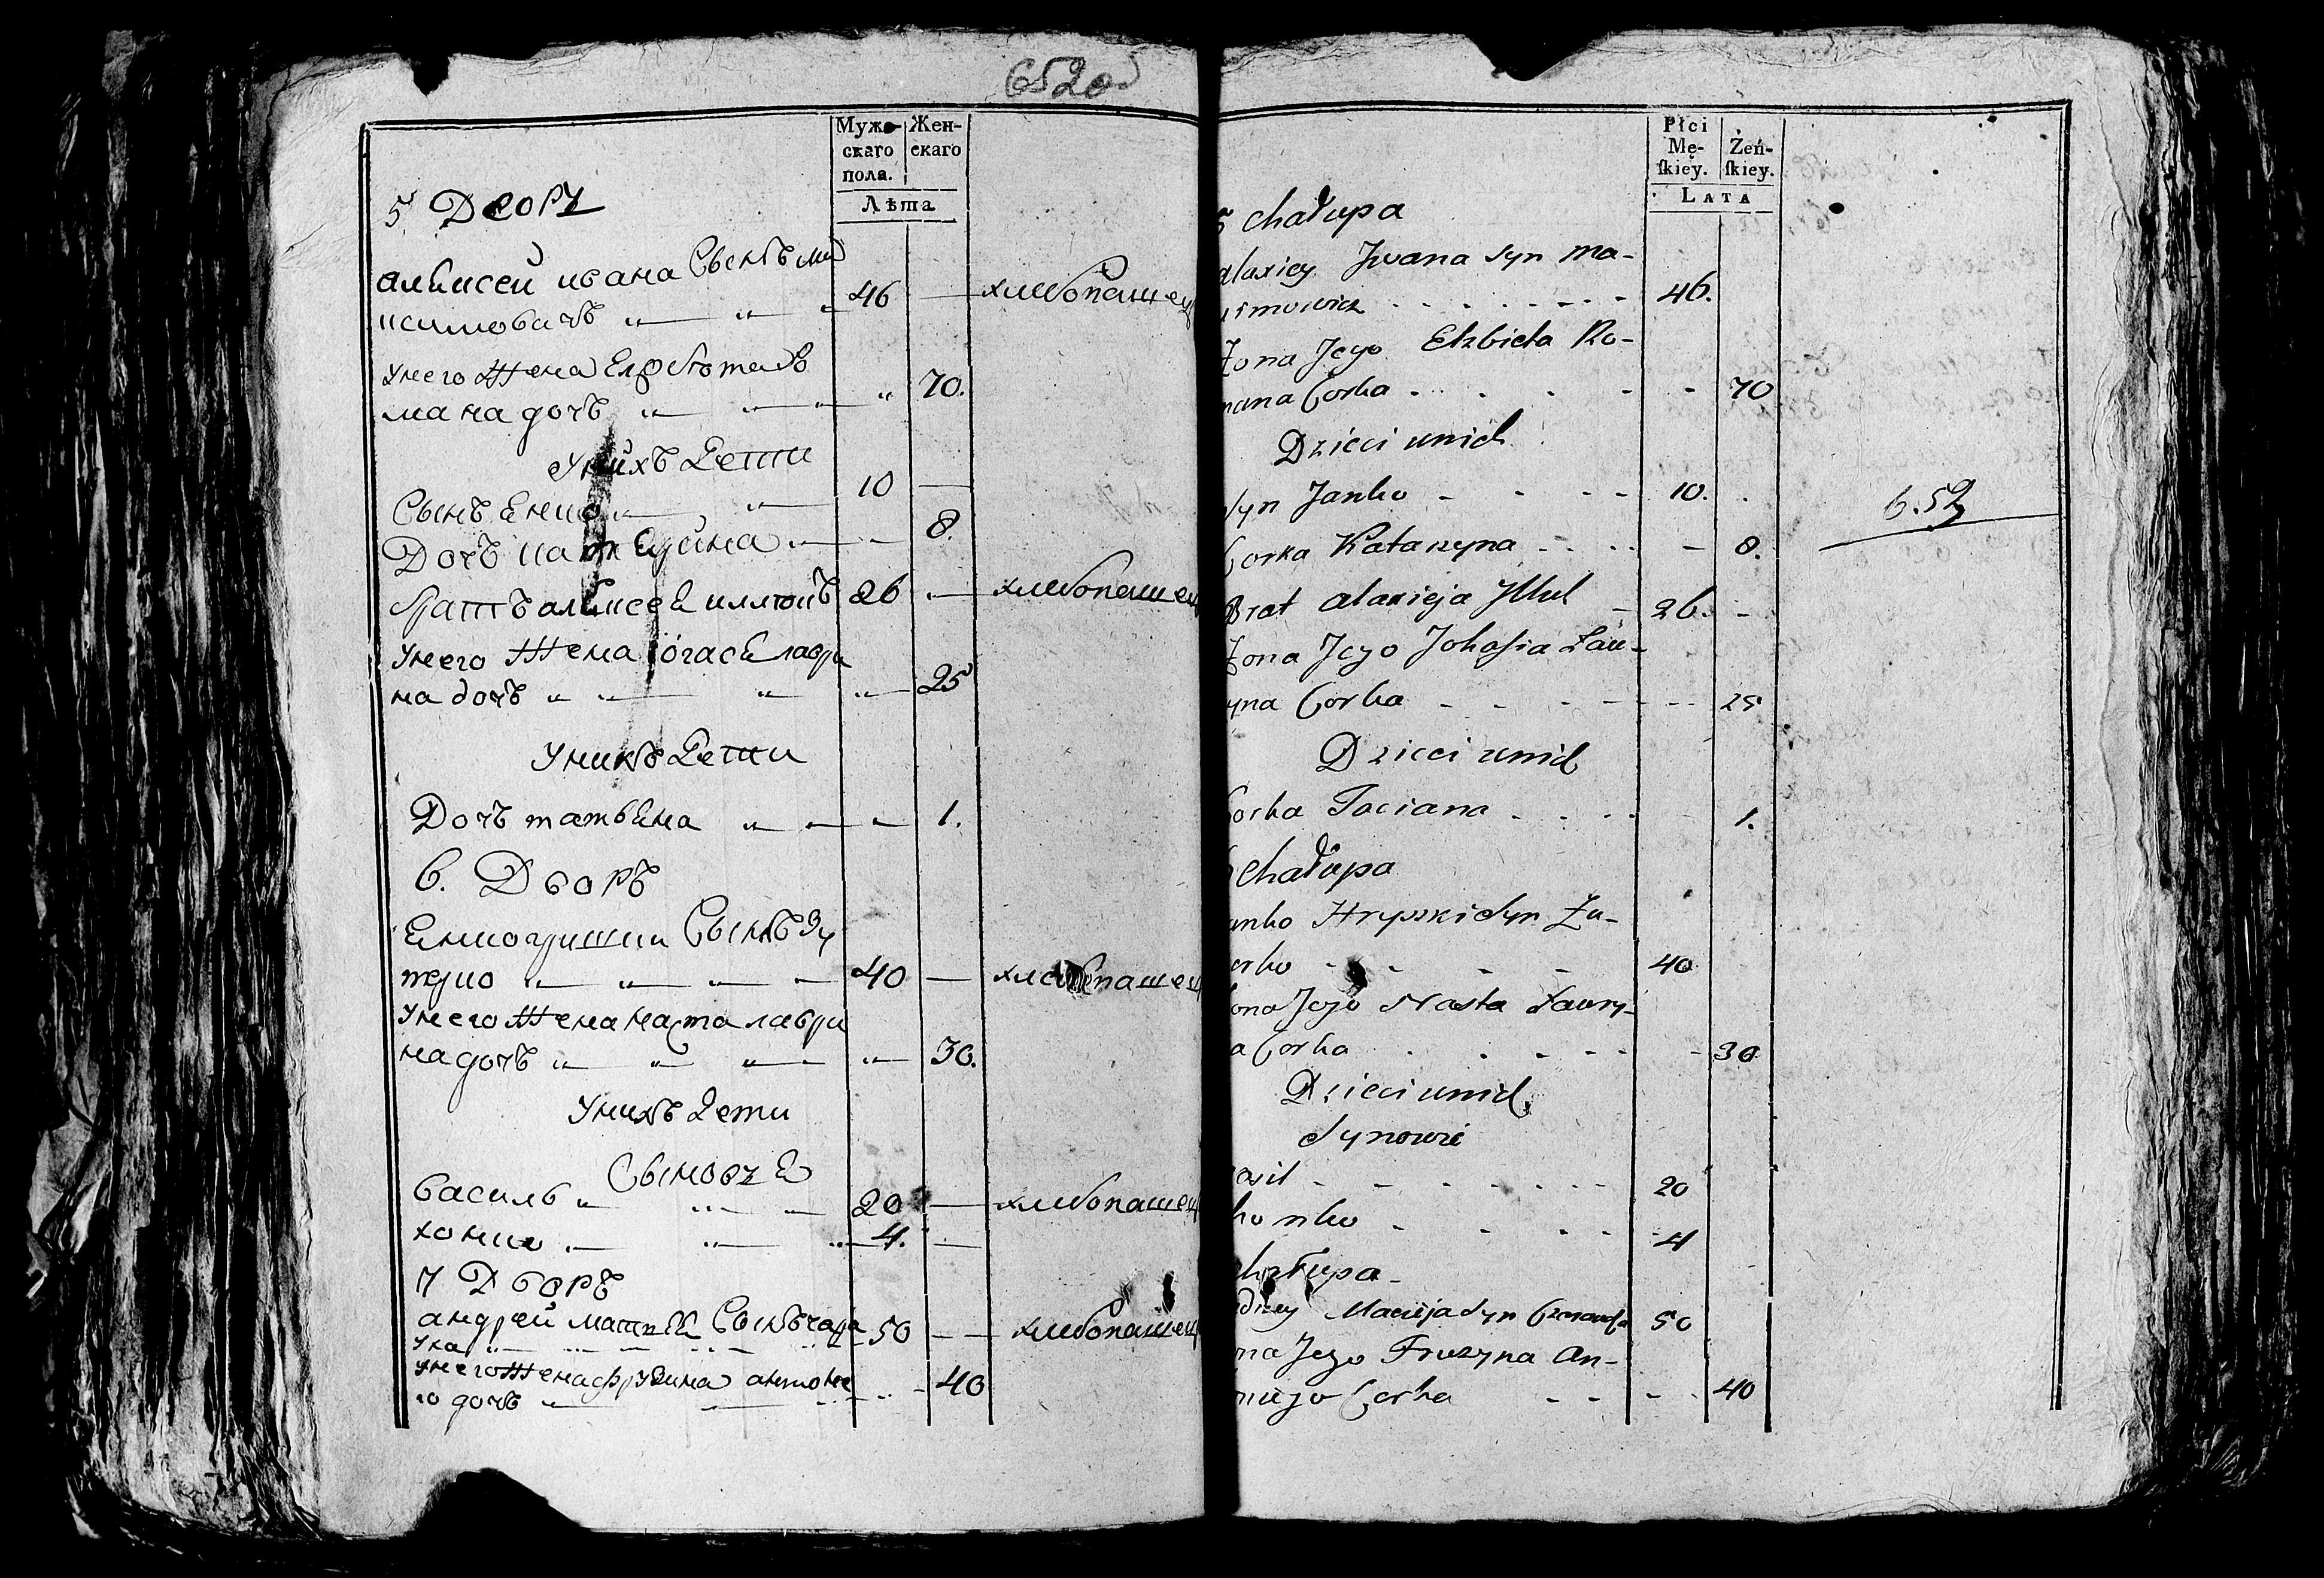 652об
Мужескаго пола. Женскаго
Лѣта
5 Дворъ
Алексей ивана Сынъ ма
ксимовичъ 46 — хлебопашец
Унего Жена Елжбета ро
мана дочъ 70.
Унихъ Дети
Сынъ Енко 10 —
Дочъ катерина 8.
братъ алексея иллюкъ 26 — хлебопашец
Унего Жена югася лаври
на дочъ 25
Унихъ Дети
Дочъ татьяна 1.
6. Дворъ
Енко гришки Сынъ Зу
терко 40 — хлебопашец
Унего Жена наста лаври
на дочъ 30.
Унихъ Дети
Сыновья
василь 20 — хлебопашец
хомко 4. —
7 Дворъ
андрей матвея Сынъ
50 — хлебопашец
унего Жена фрузина антоне
го дочъ 40
Płci Mę-skiey. Żeń-skiey.
LATA
5 chałupa
alaxiey Jwana syn Ma-
ximowicz 46.
Żona Jego Elzbieta Ro-
mana Corka 70
Dzieci unich
Syn Janko 10.
Corka Katarzyna 8.
Brat alaxieja 26.
Żona Jego Johasia Ław-
ryna Corka 25
Dzieci unich
Corka Taciana 1.
chałupa
anko Hryszki Syn Zu-
erko 40
ona Jego Nasta Ławry-
a Corka 30
Dzieci unich
Synowie
asil 20
4
chałupa
Macieja Syn 50
ona Jego Fruzyna An-
Corka 40
652